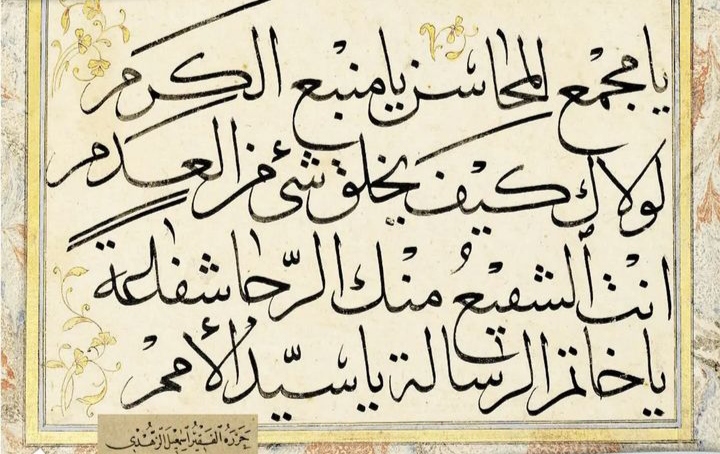 يا مجمع المحاسن يا منبع الكرم
لولاك كيف يخلق شئ من العدم
انت الشفيع منك الرّجا شفاعة
يا خاتم الرسالة يا سيّد الأمم
حرره الفقير اسمعيل الزهدي